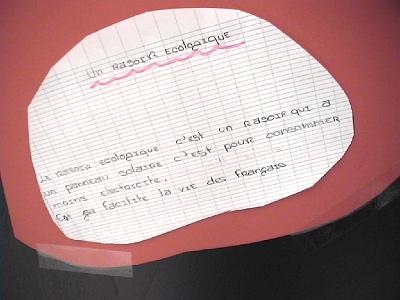 Un Rasoir Ecologique
Le Rasoir ecologique c'est un Rasoir qui a
un panneau solaire c'est pour consommer
moins electricite.
Et ça facilite la vie des français